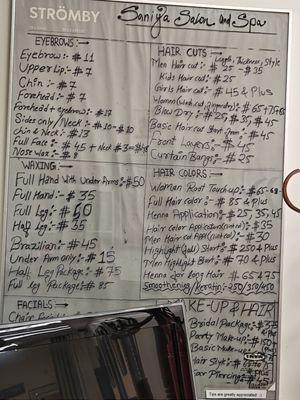 STRÖMBY
Saniya Salon and Spa
EYEBROWS:→
Eyebrow:- #11
Upper Lip:- #7
Chin:- #7
Forehead:- #7
Forehead + eyebrows:- #17
Sides Only / Neck #10-#10
Chin & Neck:- #13
Full Face:- #45 + Neck
Nose wax:- #8
WAXING:→
Full Hand With Under Arms:- #50
Full Hand:- #35
Full Leg:- #60
Half Leg:- 35
Brazilian:- #45
Under Arm only:- #15
Half Leg Package:- #75
Full leg Package:- #85
FACIALS:→
HAIR CUTS:→
Length, Thickness, Style
Men Hair cut:- #25 - #35
Kids Hair cut:- #25
Girls Hair cut:- #45 & Plus
Blow Dry:- #25, #35, #45
Basic Hair cut
#45
Front Layers:- #45
Curtain Bangs:- #25
HAIR COLORS:→
Woman Root Touch up:- #65-68
Full Hair color:- #85 & Plus
Henna Application:- #25, 35, 45
Hair Color Application
#35
Men Hair color
#30
Highlight (full) Start:- #250 & Plus
Men Highlight Start:- #70 & Plus
Henna for long Hair #65 & 75
Smoothening/Keratin:- 250/350/450
KE-UP & HAIR
Bridal Package:-
Party Make-up:-
Basic Make-up
Hair Style:-
Ear Piercing #45
Tips are greatly appreciated :)